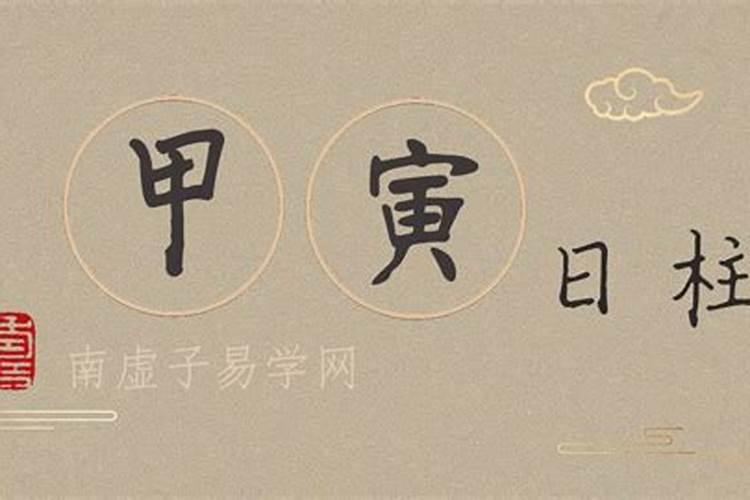 甲寅日柱
南虚子易学网